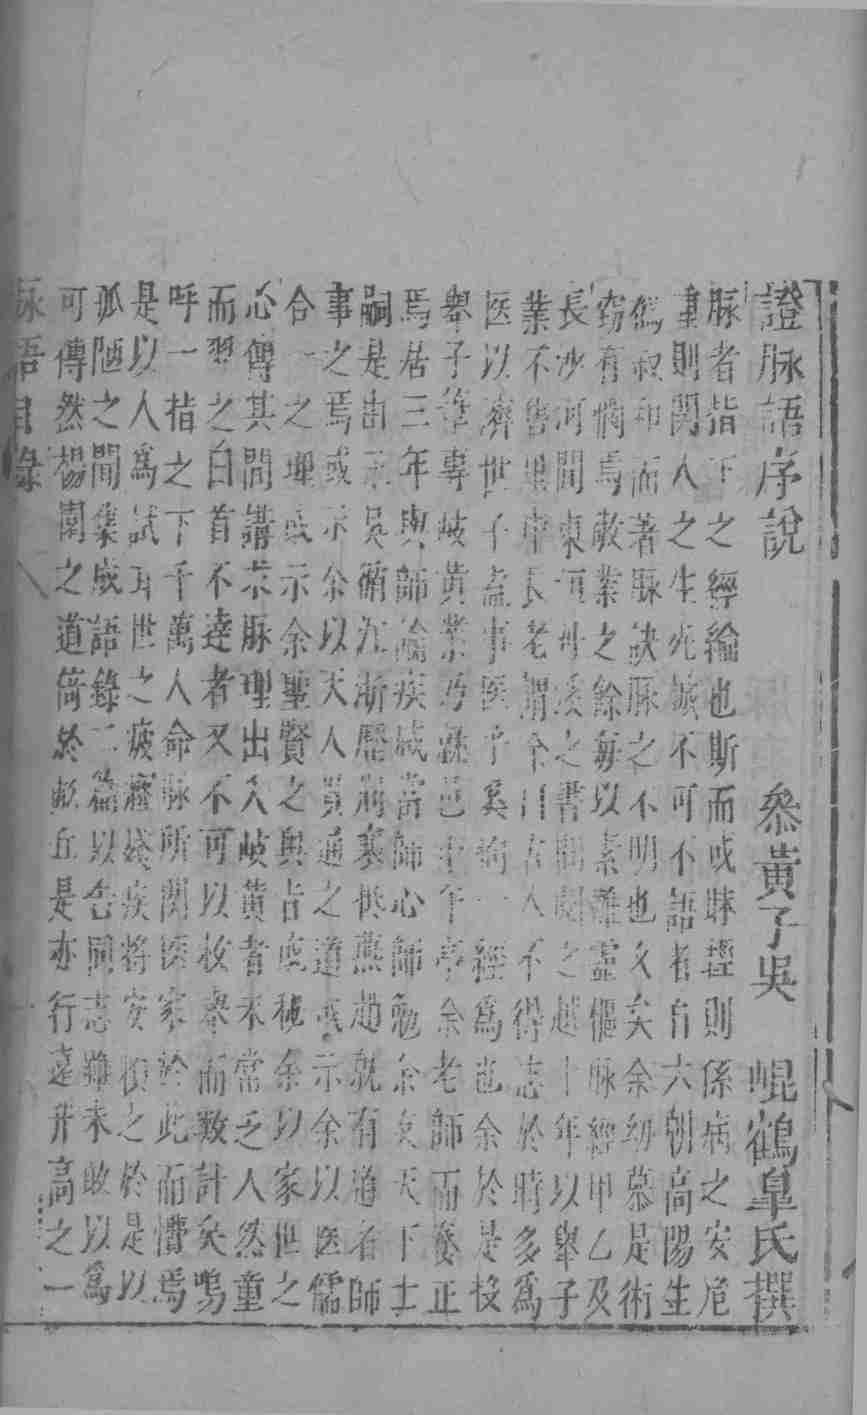 證脉語序說
叅黃子吳 崐鶴臯氏撰
脉者指下之經綸也斯而或昧經則係病之安危
重則関人之生死誠不可不語者自六朝高陽生
偽叔和而著脉訣脉之不明也久矣余幼慕是術
竊有憫焉敝業之餘每以素難靈樞脉經甲乙及
長沙河間東垣丹溪之書閱之越十年以舉子
業不售里中長老謂余曰古人不得志於時多為
医以濟世子盍事医乎奚拘一經為也余於是投
舉子筆專岐黃業乃就邑中午亭余老師而委正
焉居三年與師論疾咸當師心師勉余友天下士
嗣是由三吳循江浙歷荊襄抵燕趙就有道者師
事之焉或示余以天人貫通之道或示余以医儒
合一之理或示余聖賢之奧旨或秘余以家世之
心傳其間講求脉理出入岐黃者未常乏人然童
而習之白首不達者又不可以枚舉而數計矣嗚
呼一指之下千萬人命脉所関医家於此而懵焉
是以人為試耳世之疲癃殘疾將安賴之於是以
孤陋之聞集成語錄二篇以告同志雖未敢以為
可傳然楊園之道倚於畝丘是亦行遠升高之一
脉語目錄